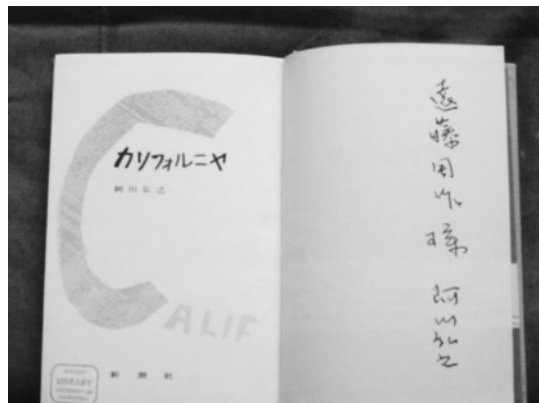 カリフォルニヤ
阿川弘之
CALIF
新潮社
LIBRARY
遠藤周作様
阿川弘之